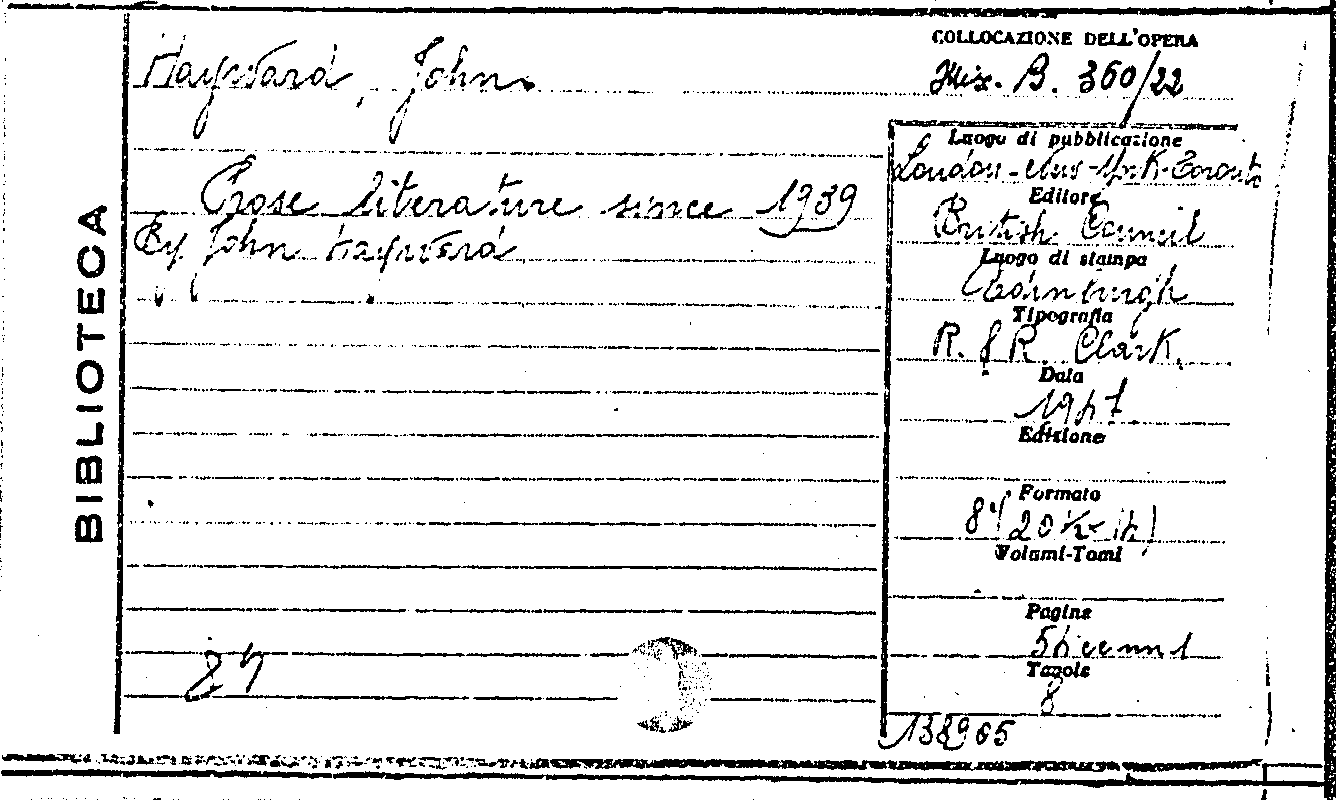 BIBLIOTECA
Hayward, John
COLLOCAZIONE DELL'OPERA
Mix. B. 360/22
Prose literature since 1939
By John Hayward
Luogo di pubblicazione
London - New-York-Toronto
Editore
British Council
Luogo di stampa
Edinburgh
Tipografia
R. & R. Clark.
Data
1947
Edizione
Formato
8°
Volumi-Tomi
Pagine
Tavole
8
138965